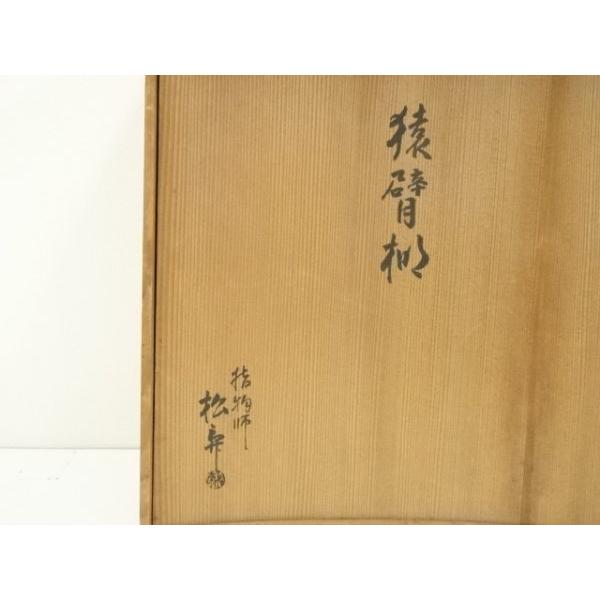 猿臂棚
指物師
松斎